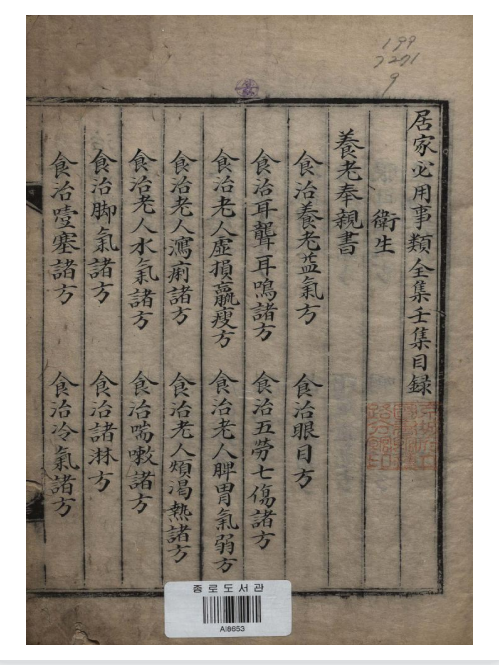 居家必用事類全集壬集目録
衛生
養老奉親書
食治養老益氣方 食治眼目方
食治耳聾耳鳴諸方 食治五勞七傷諸方
食治老人虛損羸瘦方 食治老人脾胃氣弱方
食治老人瀉痢諸方 食治老人煩渴熱諸方
食治老人水氣諸方 食治喘嗽諸方
食治脚氣諸方 食治諸淋方
食治噎塞諸方 食治冷氣諸方
199
7271
9
종로도서관
A18653